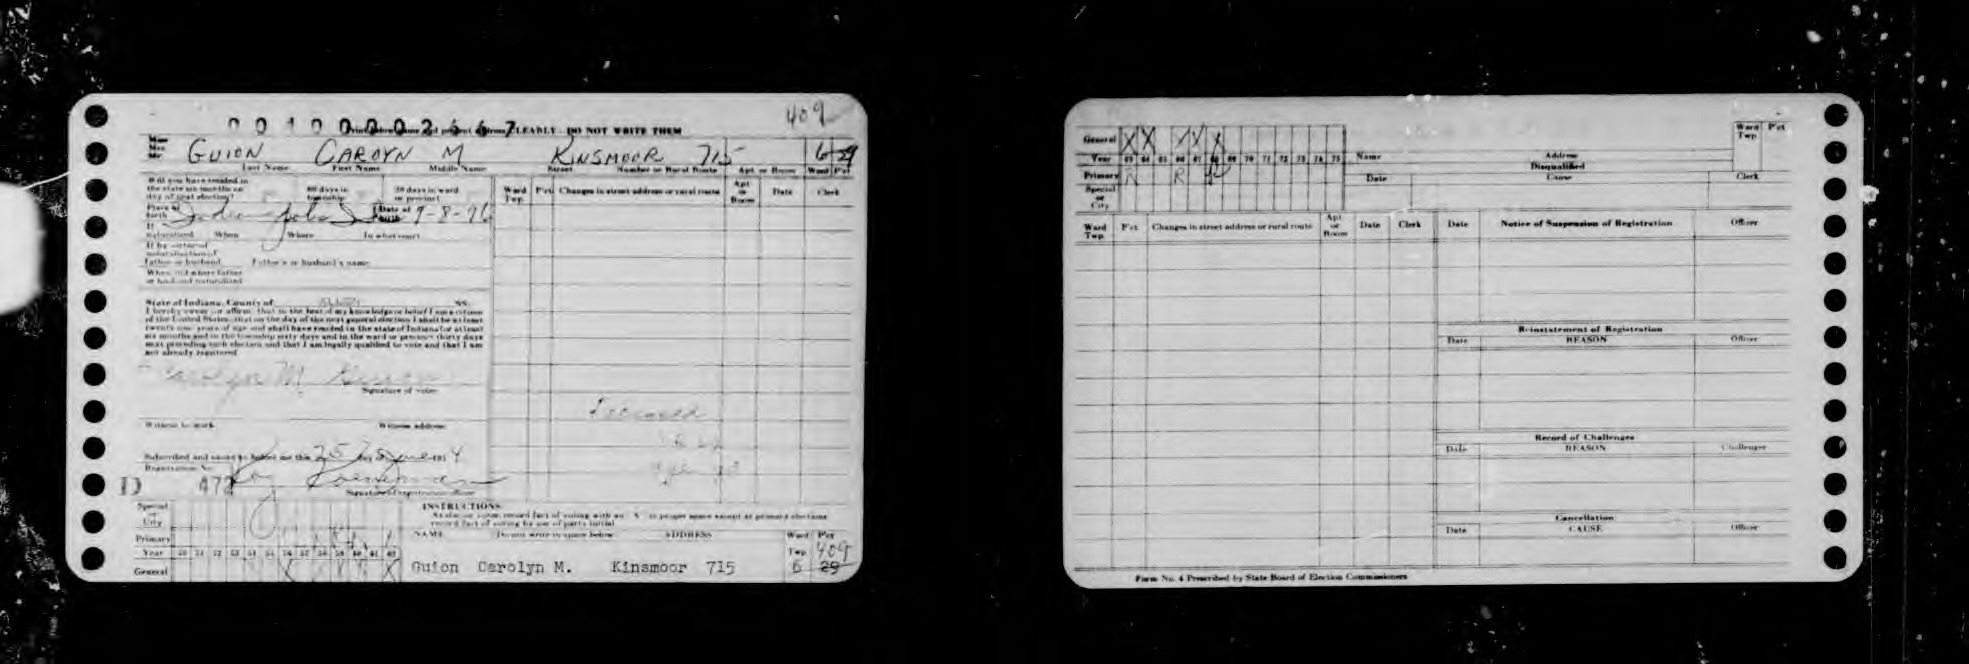 409
Print below name and present address CLEARLY—DO NOT WRITE THEM
Miss
Mrs.
Mr.
GUION CAROLYN M KINSMOOR 715 6 29
Last Name First Name Middle Name Street Number or Rural Route Apt. or Room Ward Pct
Will you have resided in
the state six months on
day of next election?
60 days in
township
30 days in ward
or precinct
Ward
Twp.
Pct. Changes in street address or rural route
Apt.
or
Room
Date Clerk
Place of
birth
Date of
birth
If
naturalized When Where In what court
If by virtue of
naturalization of
father or husband Father's or husband's name
When and where father
or husband naturalized
State of Indiana, County of ss:
I hereby swear (or affirm) that to the best of my knowledge or belief I am a citizen
of the United States, that on the day of the next general election I shall be at least
twenty-one years of age and shall have resided in the state of Indiana for at least
six months and in the township sixty days and in the ward or precinct thirty days
next preceding such election and that I am legally qualified to vote and that I am
not already registered.
Carolyn M. Guion
Signature of voter
Deceased
Witness to mark Witness address
Subscribed and sworn to before me this 25 day June 1954
Registration No.
D 472
Signature of registration officer
Special
or
City
INSTRUCTIONS
record fact of voting with an "X" in proper space except at primary elections
record fact of voting by use of party initial
Primary
NAME Do not write in space below ADDRESS Ward Pct
Year 50 51 52 53 54 55 56 57 58 59 60 61 62
Twp. 409
General
Guion Carolyn M. Kinsmoor 715 6 29
General X X X X
Ward
Twp.
Pct
Year 63 64 65 66 67 68 69 70 71 72 73 74 75
Name Address
Disqualified
Primary R R
Date Cause Clerk
Special
or
City
Ward
Twp.
Pct. Changes in street address or rural route
Apt.
or
Room
Date Clerk
Date Notice of Suspension of Registration Officer
Reinstatement of Registration
Date REASON Officer
Record of Challenges
Date REASON Challenger
Cancellation
Date CAUSE Officer
Form No. 4 Prescribed by State Board of Election Commissioners